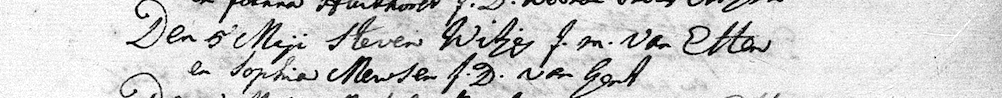 en Joanna J. D.
Den 5 Meji Steven Witjes J. m. van Etten
en Sophia Mewsen J. D. van Gent